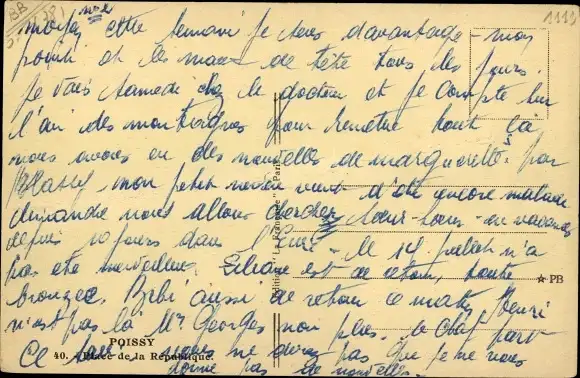 1119
noël
cette semaine je sens davantage mon
point et les maux de tête tous les jours.
Je vais samedi chez le docteur et je compte sur
l'air des montagnes pour remettre tout ça
nous avons eu des nouvelles de marguerette. par
mon petit neveu vient d'être encore malade
dimanche nous allons chercher en vacances
depuis 10 jours dans l' - le 14 juillet n'a
pas été merveilleux. Liliane est de retour, toute
bronzée. Bébé aussi de retour ce matin Henri
n'est pas là Mr Georges non plus. le chef part
Ce ne direz pas que je ne vous
donne pas de nouvelles.
POISSY
40. - Place de la République.
★ PB